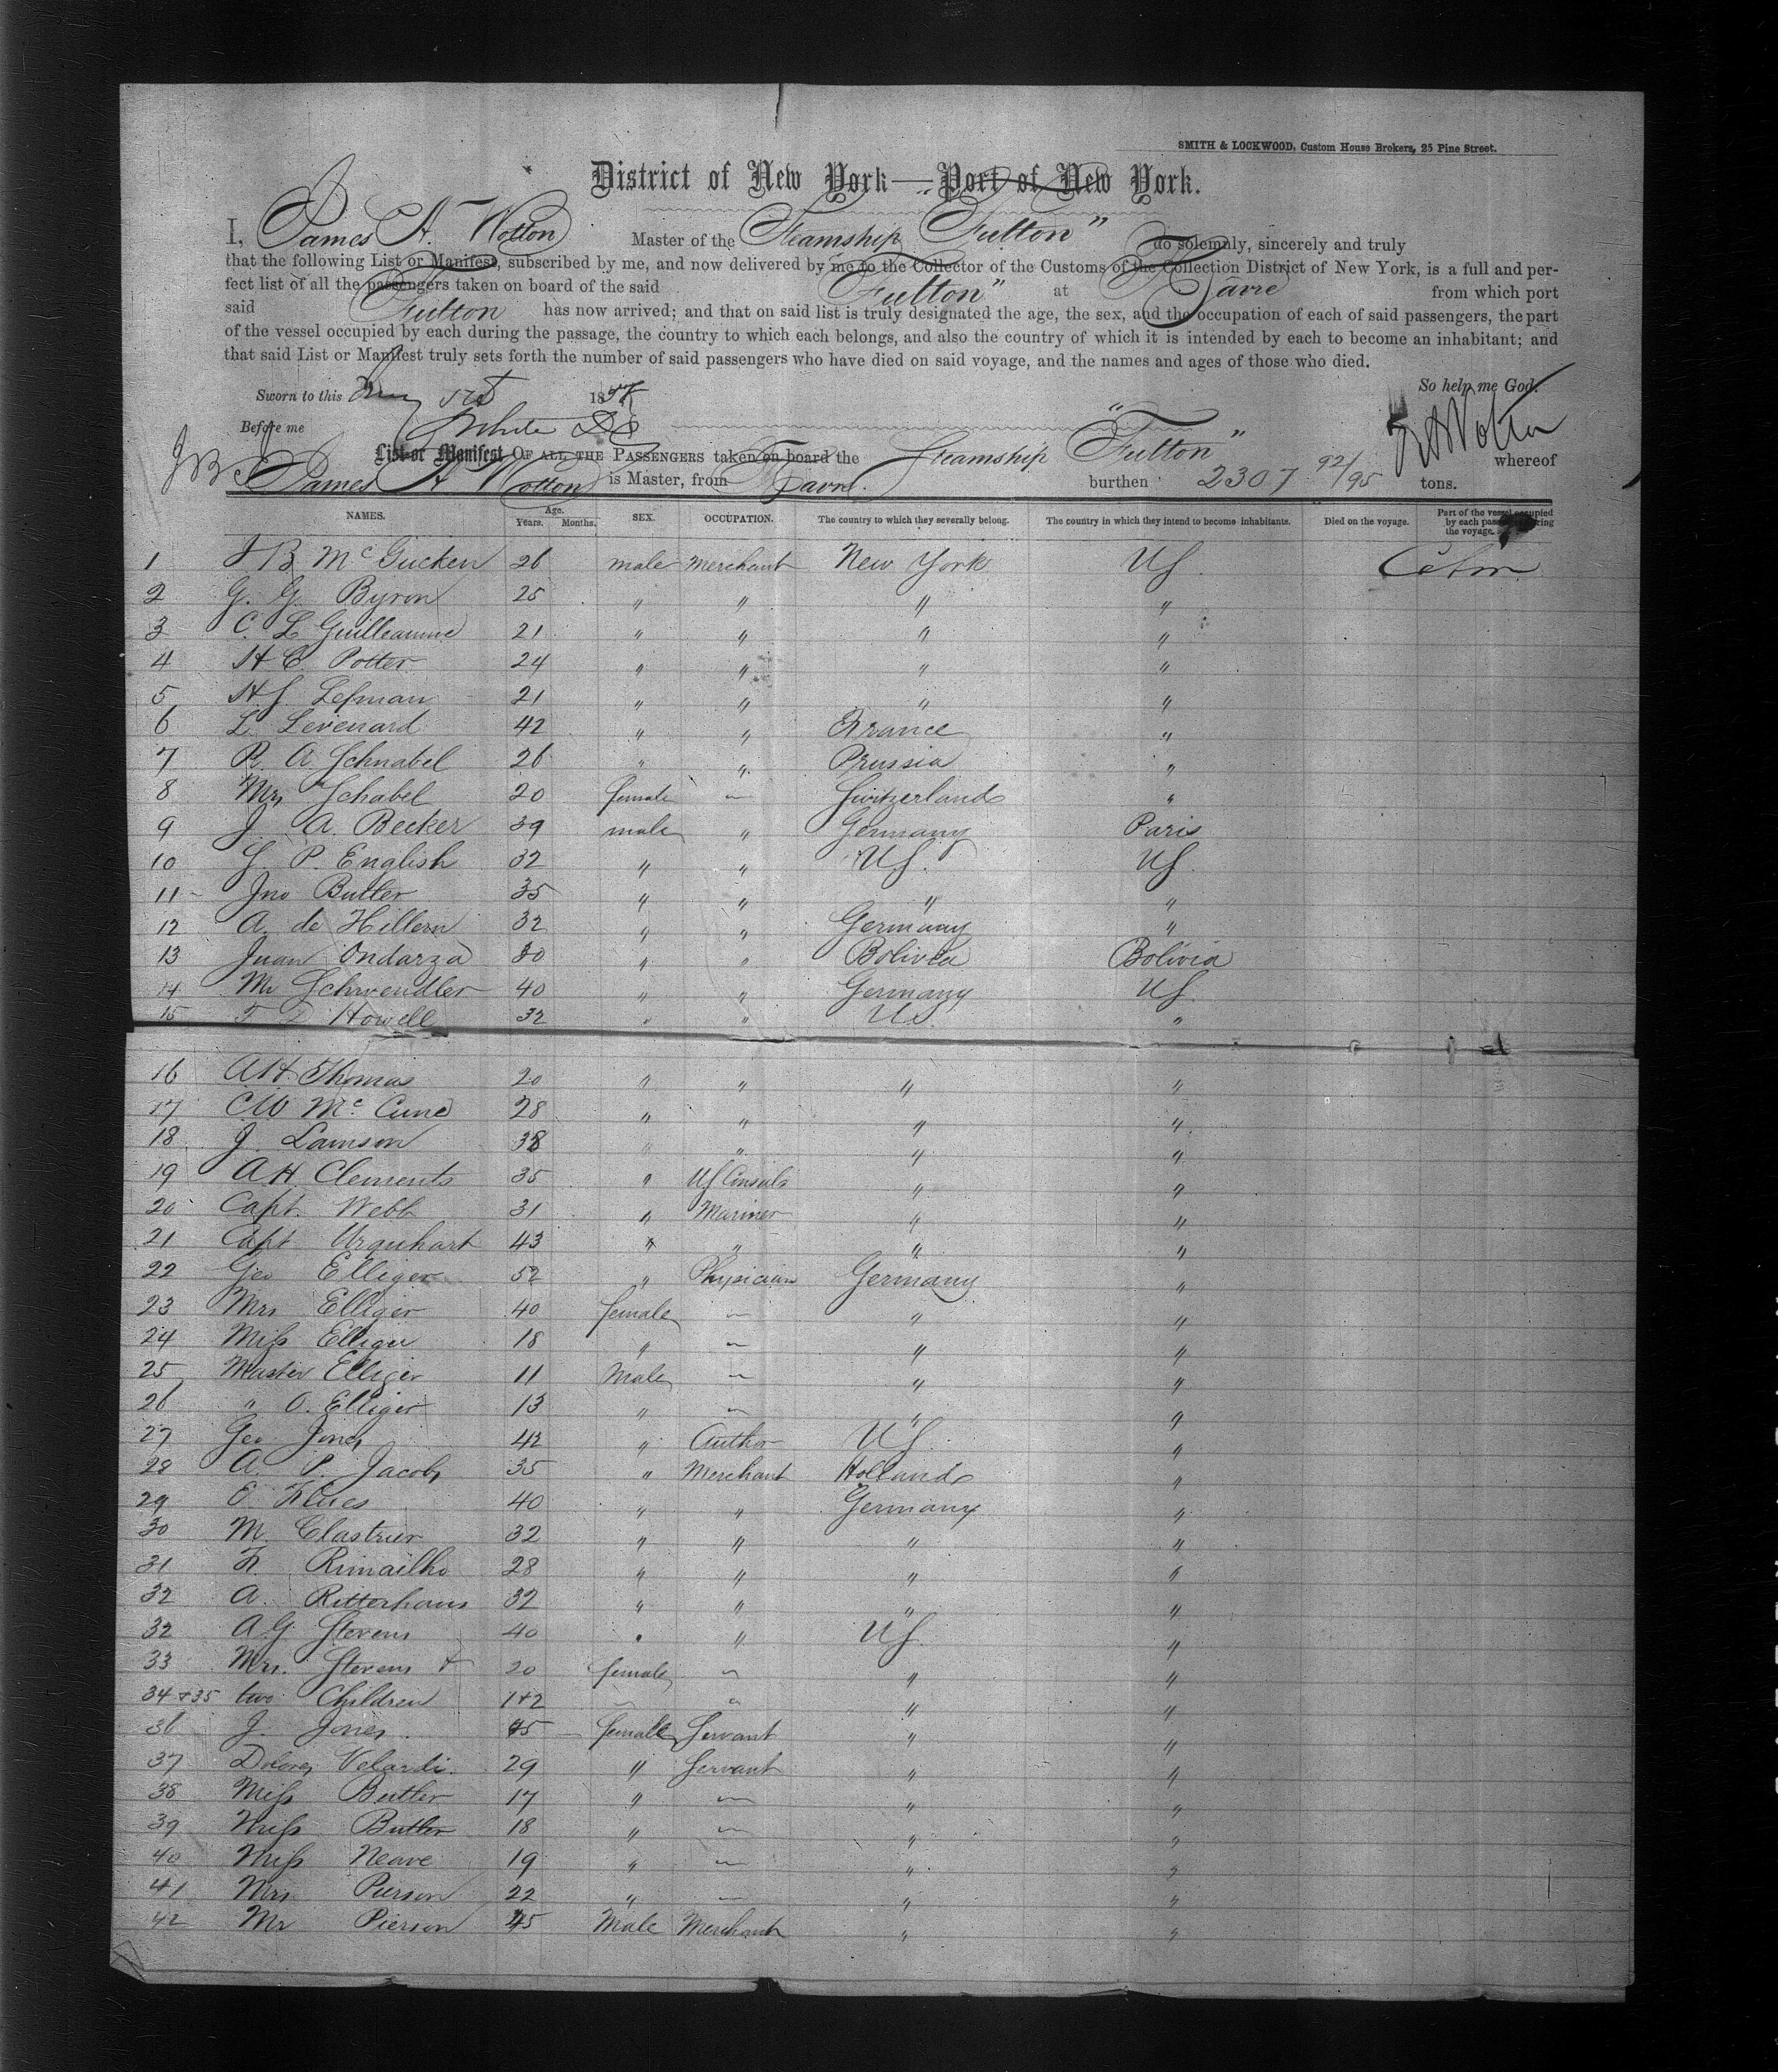 SMITH & LOCKWOOD, Custom House Brokers, 25 Pine Street.
District of New York—Port of New York.
I, James A. Wotton Master of the Steamship "Fulton" do solemnly, sincerely and truly
that the following List or Manifest, subscribed by me, and now delivered by me to the Collector of the Customs of the Collection District of New York, is a full and per-
fect list of all the passengers taken on board of the said "Fulton" at Havre from which port
said Fulton has now arrived; and that on said list is truly designated the age, the sex, and the occupation of each of said passengers, the part
of the vessel occupied by each during the passage, the country to which each belongs, and also the country of which it is intended by each to become an inhabitant; and
that said List or Manifest truly sets forth the number of said passengers who have died on said voyage, and the names and ages of those who died.
So help me God.
Sworn to this 18
Before me White
J A Wotton
List or Manifest OF ALL THE PASSENGERS taken on board the Steamship "Fulton" whereof
James A Wotton is Master, from Havre. burthen 2307 92/95 tons.
NAMES. Age. Years. Months. SEX. OCCUPATION. The country to which they severally belong. The country in which they intend to become inhabitants. Died on the voyage. Part of the vessel occupied by each passenger during the voyage.
1 J B McGucken 26 male Merchant New York US
2 G. G. Byron 25 " " " "
3 C. L Guilleaume 21 " " " "
4 H C Potter 24 " " " "
5 H S Lefman 21 " " " "
6 L Levenard 42 " " France "
7 R. A. Schnabel 26 " " Prussia "
8 Mrs Schabel 20 female — Switzerland "
9 J. A. Becker 39 male " Germany Paris
10 S. P. English 32 " " US. US.
11 Jno Butler 35 " " " "
12 A. de Hillern 32 " " Germany "
13 Juan Ondarza 30 " " Bolivia Bolivia
14 Mr Schwendler 40 " " Germany US
15 T D Howell 32 " " US. "
16 A H Thomas 20 " " " "
17 C W McCune 28 " " " "
18 J Lamson 38 " " " "
19 A H Clements 35 " US Consul " "
20 Capt. Webb 31 " Mariner " "
21 Capt Urquhart 43 " " " "
22 Geo Elliger 52 " Physician Germany "
23 Mrs Elliger 40 female — " "
24 Miss Elliger 18 " — " "
25 Master Elliger 11 Male — " "
26 " O. Elliger 13 " — " "
27 Geo Jones 42 " Author US. "
28 A. P. Jacobs 35 " Merchant Holland "
29 40 " " Germany "
30 M. Clastrier 32 " " " "
31 F. Rimailho 28 " " " "
32 A. Ritterhaus 32 " " " "
32 A G Stevens 40 " " US "
33 Mrs. Stevens + 20 female — " "
34 + 35 two Children 1+2 — " " "
36 J. Jones 45 female Servant " "
37 Dolores Velardi. 29 " Servant " "
38 Miss Butler 17 " — " "
39 Miss Butler 18 " — " "
40 Miss Neave 19 " — " "
41 Mrs Pierson 22 " — " "
42 Mr Pierson 45 Male Merchant " "